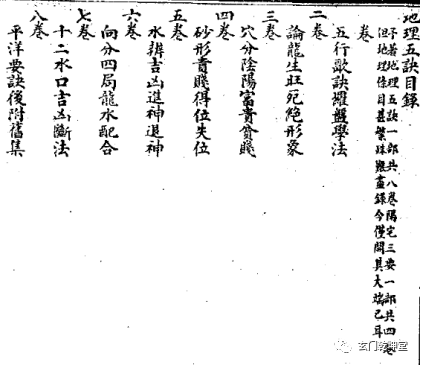 地理五訣目錄
下著地理五訣一部共八卷陽宅三要一部共四卷
但地理條目甚繁殊難盡錄今僅開其大端已耳
卷
五行歌訣羅盤學法
二卷
論龍生旺死絕形象
三卷
穴分陰陽富貴貧賤
四卷
砂形貴賤得位失位
五卷
水辨吉凶進神退神
六卷
向分四局龍水配合
七卷
十二水口吉凶斷法
八卷
平洋要訣後附舊集
玄门乾坤堂